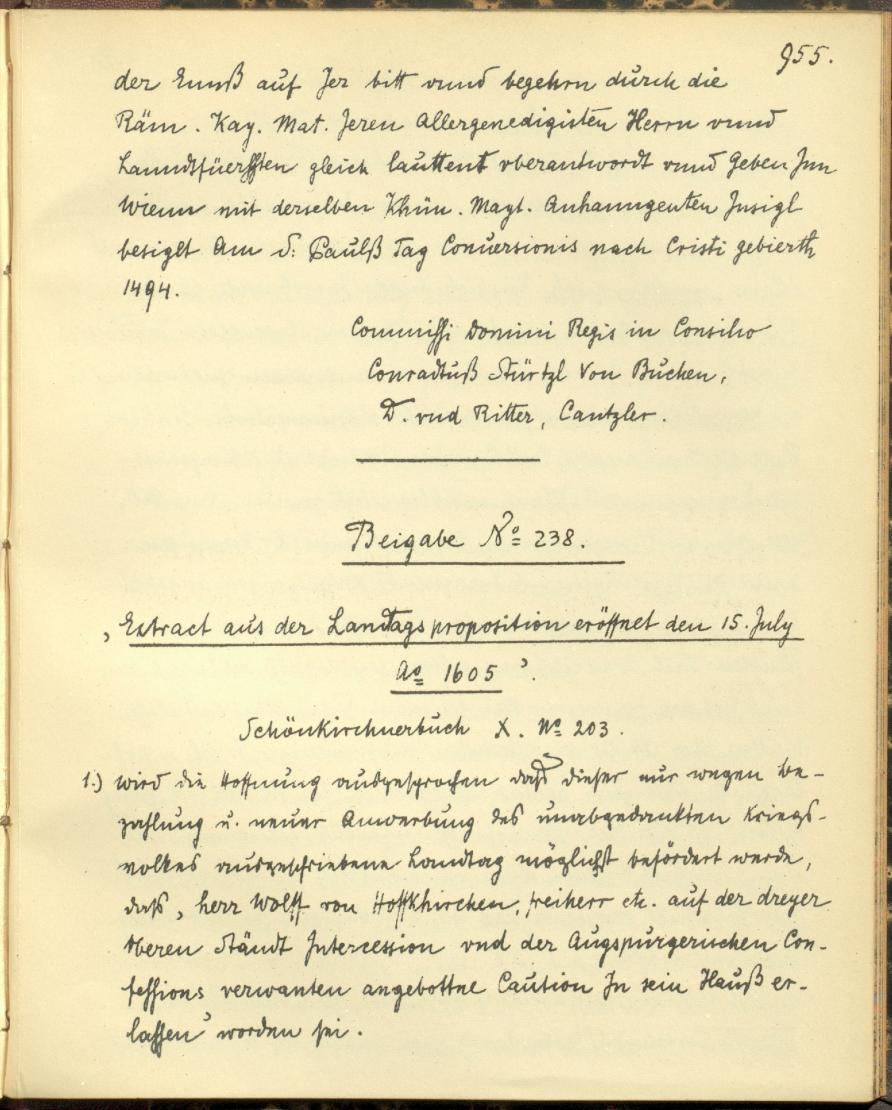 955.
der Ennß auf Jer bitt vnnd begehrn durch die
Räm. Kay. Mat. Jeren Allergenedigisten Herrn vnnd
Lanndtfüerssten gleich lauttent vberantwordt vnnd Geben Jnn
Wienn mit derselben Khün. Mayt. Anhanngenten Jnsigl
besiglt Am S: Paulß Tag Conuersionis nach Cristi gebierth
1494.
Commissi Domini Regis in Consilio
Conradtuß Stürtzl Von Buchen,
D. vnd Ritter, Cantzler.
Beigabe No 238.
„Extract aus der Landtagsproposition eröffnet den 15. July
Ao 1605".
Schönkirchnerbuch X. No 203.
1.) wird die Hoffnung ausgesprochen daß dieser nur wegen Be-
zahlung u. neuer Anwerbung des unabgedankten Kriegs-
volkes ausgeschriebene Landtag möglichst befördert werde,
daß „herr Wolff von Hoffkhirchen, freiherr etc. auf der dreyer
Oberen Ständt Intercession vnd der Augspurgerischen Con-
fessions verwanten angebottne Caution In sein Hauß er-
lassen" worden sei.